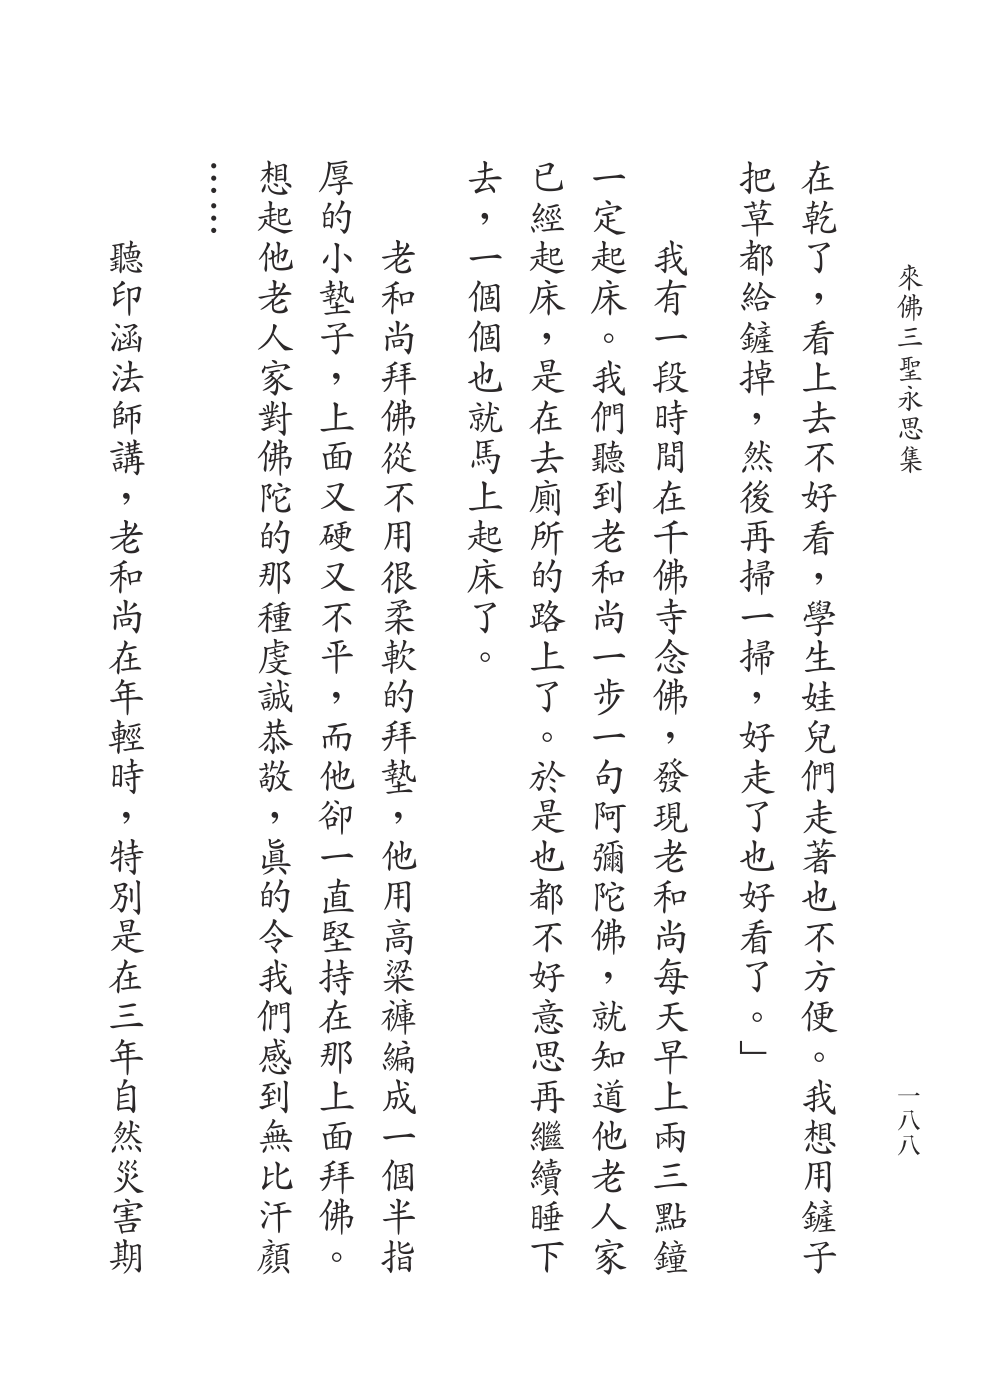 來佛三聖永思集
一八八
在乾了，看上去不好看，學生娃兒們走著也不方便。我想用鏟子
把草都給鏟掉，然後再掃一掃，好走了也好看了。」
我有一段時間在千佛寺念佛，發現老和尚每天早上兩三點鐘
一定起床。我們聽到老和尚一步一句阿彌陀佛，就知道他老人家
已經起床，是在去廁所的路上了。於是也都不好意思再繼續睡下
去，一個個也就馬上起床了。
老和尚拜佛從不用很柔軟的拜墊，他用高粱褲編成一個半指
厚的小墊子，上面又硬又不平，而他卻一直堅持在那上面拜佛。
想起他老人家對佛陀的那種虔誠恭敬，眞的令我們感到無比汗顏
……
聽印涵法師講，老和尚在年輕時，特別是在三年自然災害期